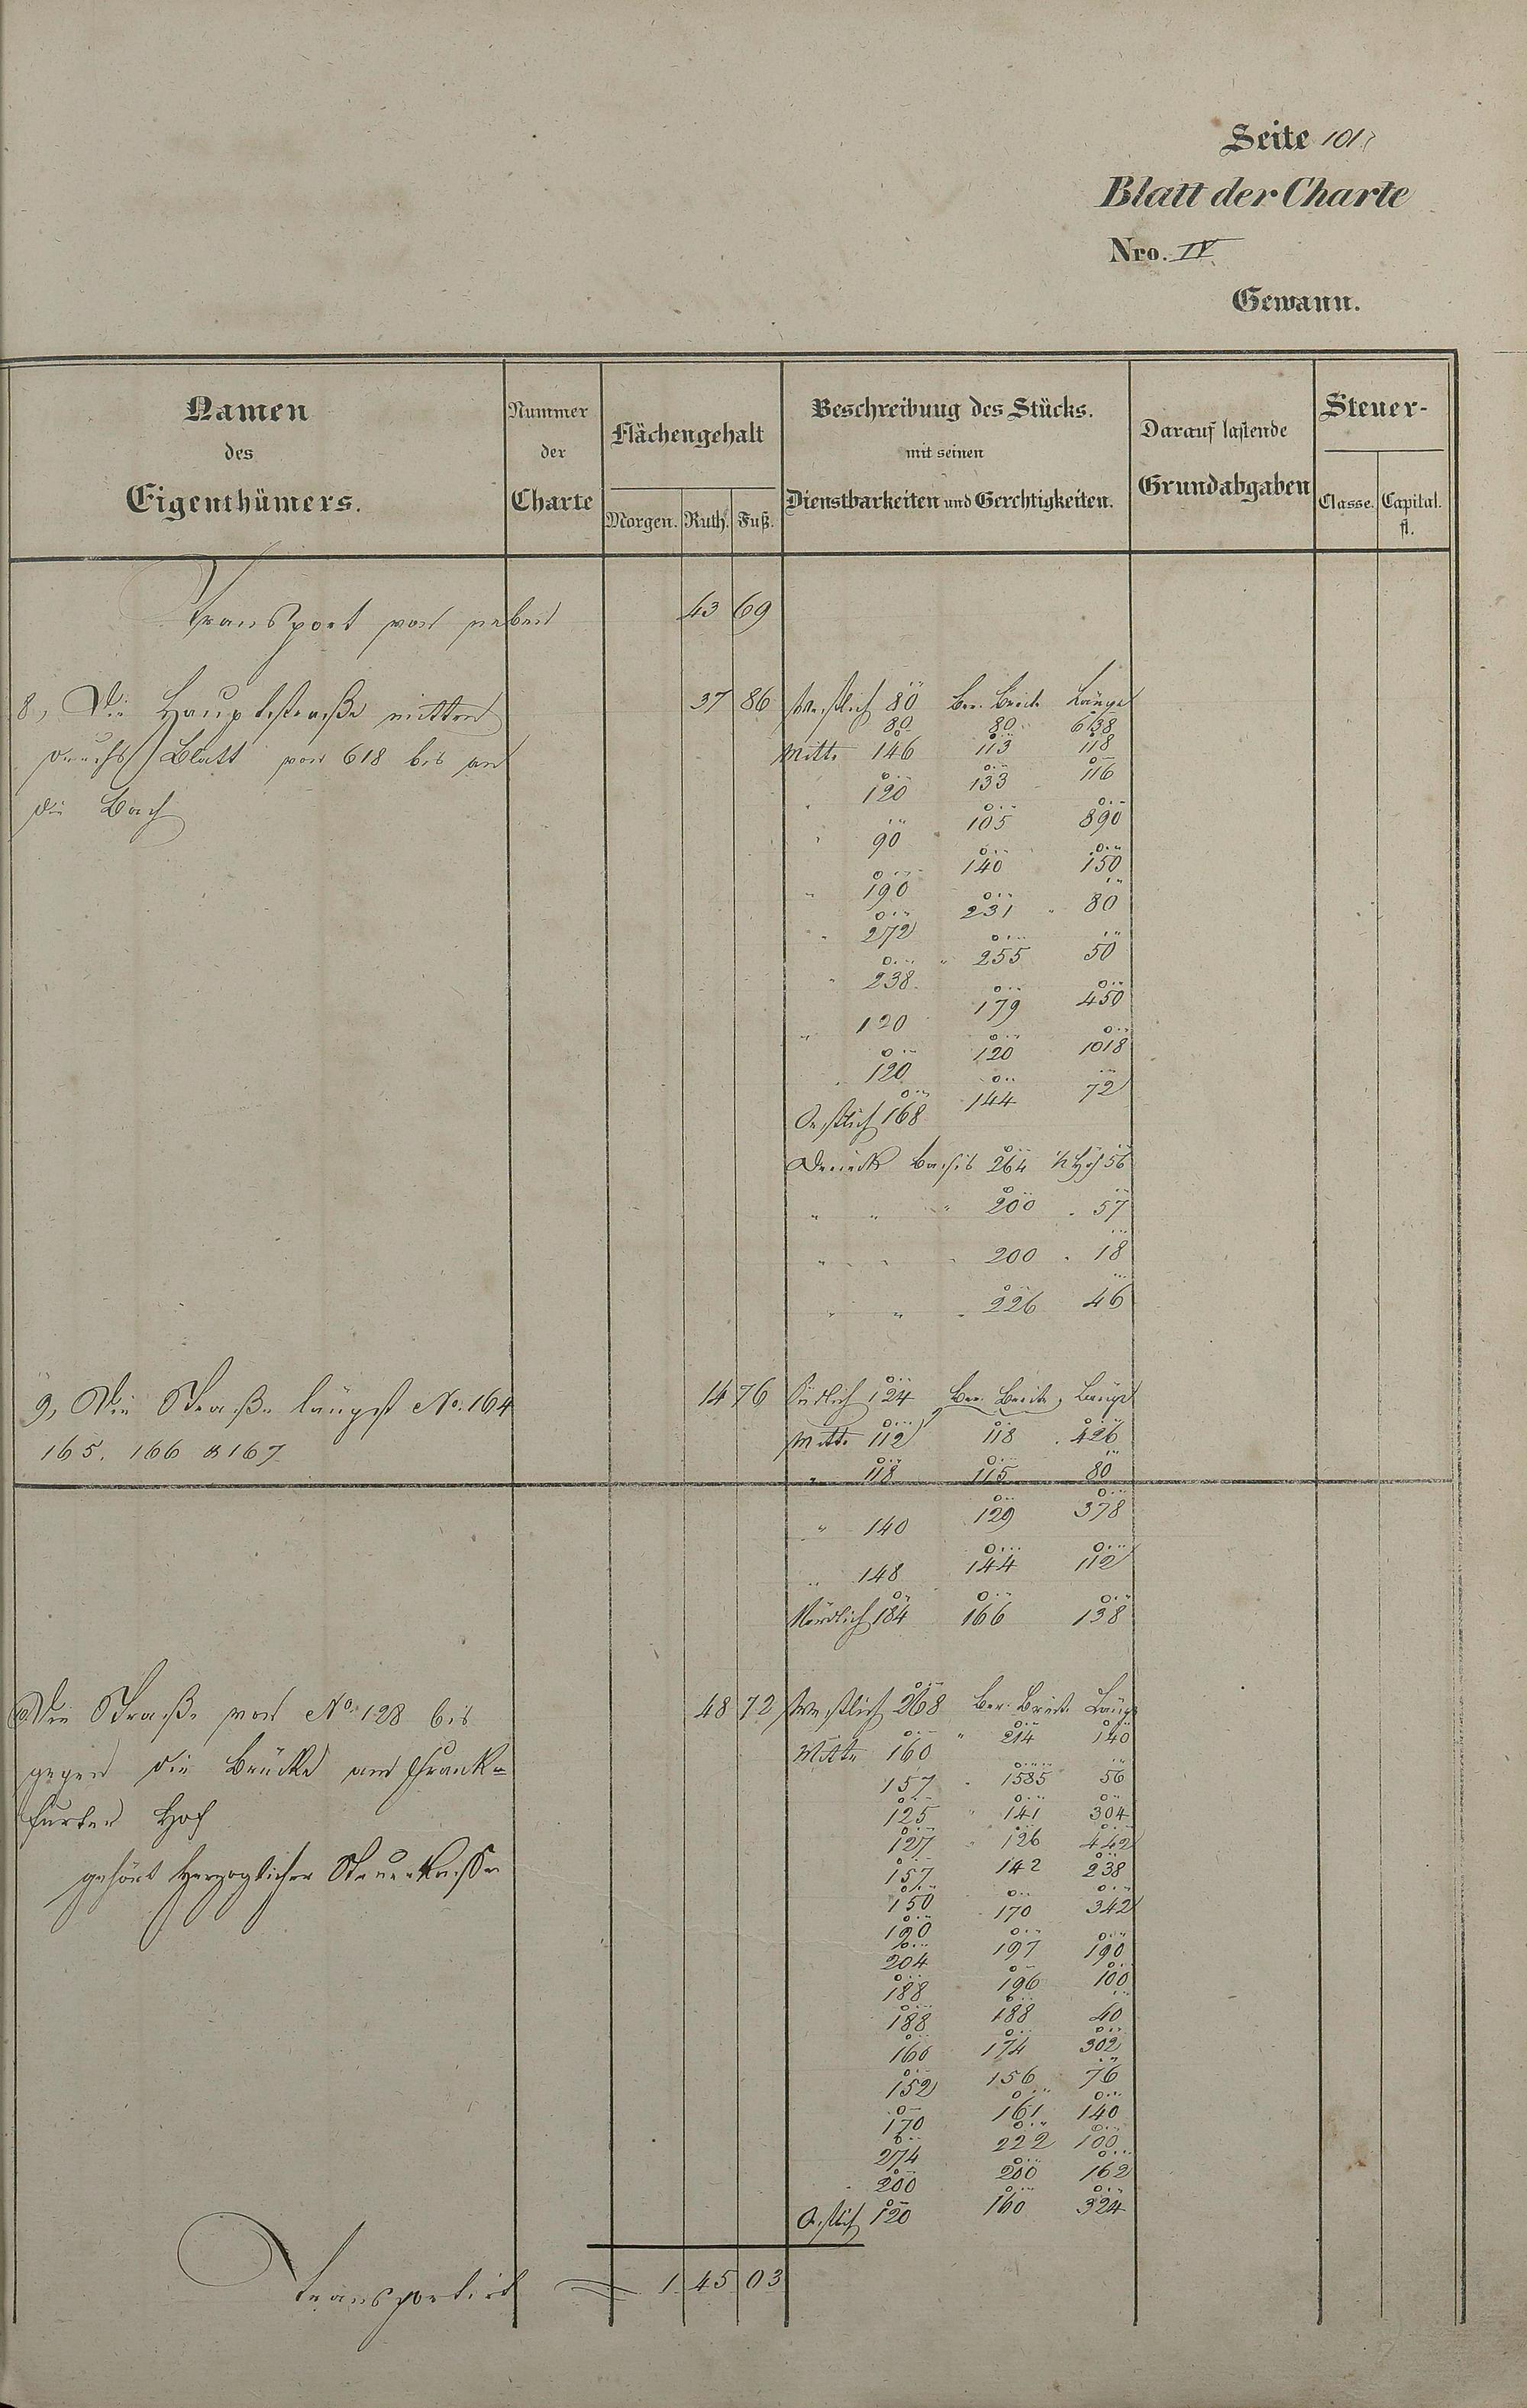 Seite 101
Blatt der Charte
Nro. IV.
Gewann.
Namen
des
Eigenthümers.
Nummer
der
Charte
Flächengehalt
Morgen. Ruth. Fuß.
Beschreibung des Stücks.
mit seinen
Dienstbarkeiten und Gerechtigkeiten.
Darauf lastende
Grundabgaben
Steuer-
Classe. Capital.
fl.
Transport von neben 43 69
8, Die Hauptstraße mitten 37 86 Westlich 80 Ber. Breite Länge
80 80 638
durchs Blatt von 618 bis an Mitte 146 113 118
die Bach " 120 133 116
" 90 105 890
" 190 140 150
" 272 231 " 80
" 238 " 255 50
" 120 179 450
" 120 120 1018
Oestlich 168 144 72
Dreieck Basis 264 ½ Höh 56
" " " 200 " 57
" " " 200 " 18
" " " 226 46
9, Die Straße längst No. 164 14 76 Südlich 124 Ber. Breite, Länge
165. 166 & 167 Mitte 112 118 " 426
" 118 115 80
" 140 129 378
" 148 144 112
Nördlich 184 166 138
Die Straße von No. 128 bis 48 72 Westlich 268 Ber. Breite Länge
gegen die Brücke am Frank= Mitte 160 " 214 140
157 " 1585 56
furter Hof 125 " 141 304
127 " 126 442
gehört Herzoglicher Steuerkasse 157 142 238
150 170 342
190
204 197 190
188 196 100
188 188 40
160 174 302
152 156 76
170 161 140
274 222 100
200 200 162
Oestlich 120 160 324
Transportirt 1 45 03